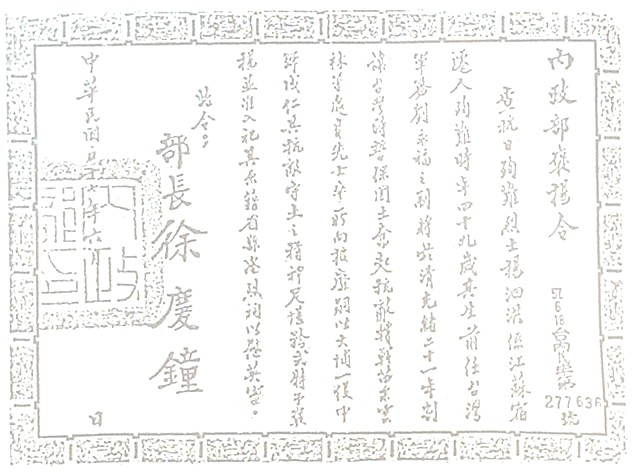 內政部褒揚令
57 6 18 台內民字第 277636 號
查抗日殉難烈士楊泗洪係江蘇宿
遷人殉難時年四十九歲其生前任台灣
軍務劉永福之副將於清光緒二十一年割
讓台灣時誓保國土奮起抗敵轉戰苗栗雲
林等處身先士卒所向披靡嗣以大埔一役中
彈成仁其抗敵守土之精神足堪矜式特予褒
揚並准入祀其原籍省縣忠烈祠以慰英靈。
此令。
部長徐慶鐘
中華民國 十七年六月 日